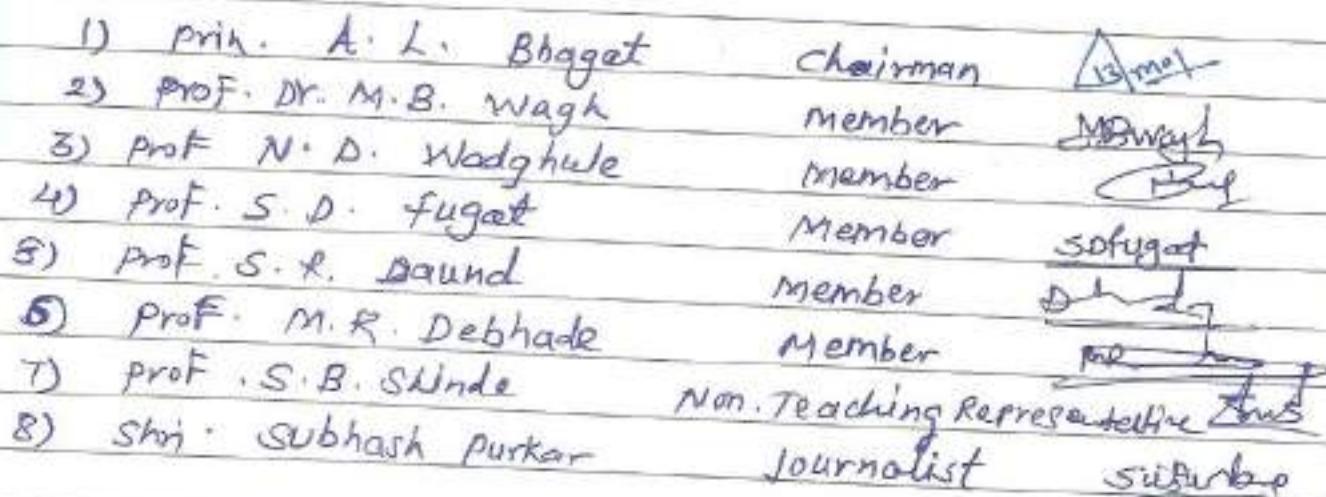 1) Prin. A. L. Bhagat Chairman
2) Prof. Dr. M.B. Wagh Member MBWagh
3) Prof N. D. Wadghule Member
4) Prof. S. D. Fugat Member SDFugat
5) Prof. S. R. Daund Member
6) Prof. M. R. Debhade Member
7) Prof. S. B. Shinde Non. Teaching Representative
8) Shri. Subhash Purkar Journalist